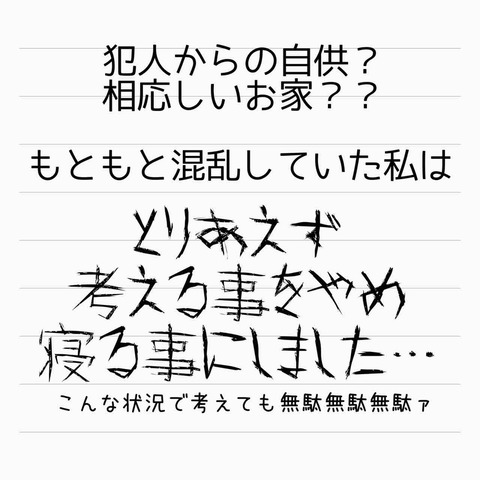 犯人からの自供？
相応しいお家？？
もともと混乱していた私は
とりあえず
考える事をやめ
寝る事にしました…
こんな状況で考えても無駄無駄無駄ァ